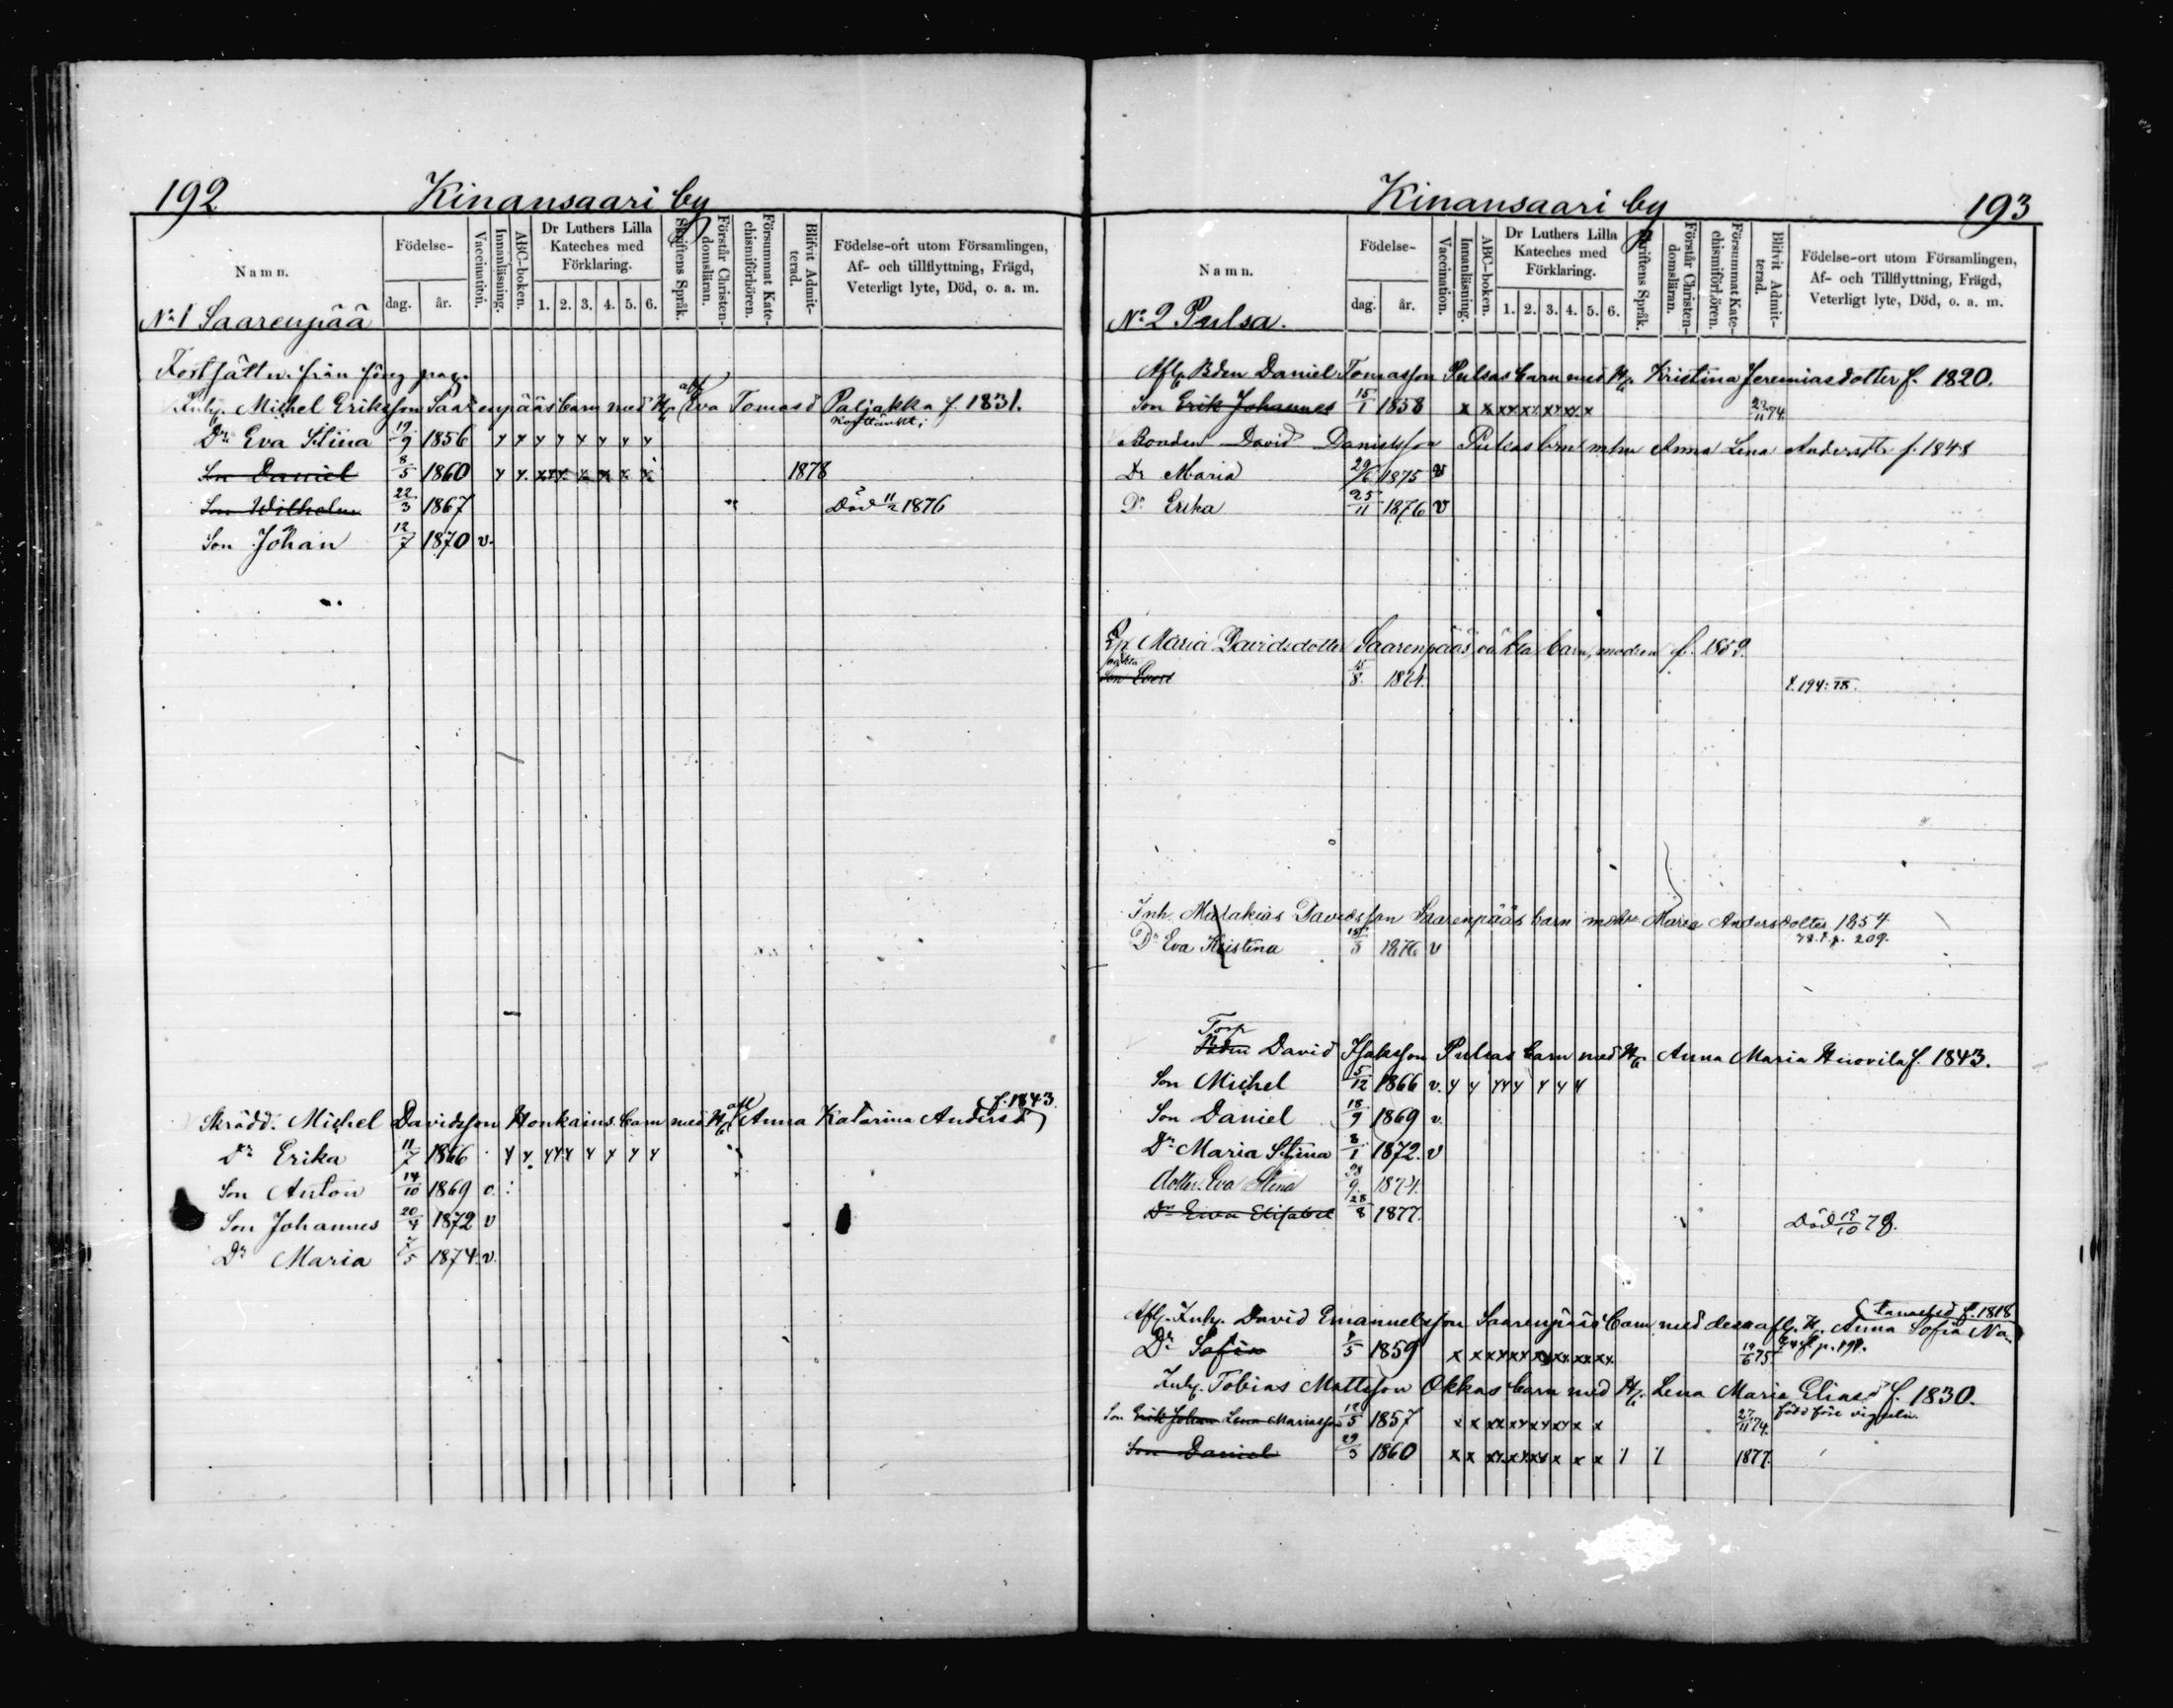 192 Kinansaari by
Namn. Födelse- dag. år. Vaccination. Innanläsning. ABC-boken. Dr Luthers Lilla Kateches med Förklaring. 1. 2. 3. 4. 5. 6. Skriftens Språk. Förstår Christendomsläran. Försummat Katechismiförhören. Blifvit Admitterad. Födelse-ort utom Församlingen, Af- och tillflyttning, Frägd, Veterligt lyte, Död, o. a. m.
No 1 Saarenpää
Fortsättn. från föreg pag.
Inh. Michel Eriksson Saarenpääs barn med H. afl. Eva Tomasd Paljakka f. 1831.
Dr Eva Stina 19/9 1856
Son Daniel 8/5 1860 1878
Son Wilhelm 22/3 1867 Död 11/2 1876
Son Johan 12/7 1870 v.
Skrädd. Michel Davidsson Honkains barn med H. Anna Katarina Andersd f. 1843.
Dr Erika 11/7 1866
Son Anton 14/10 1869 v.
Son Johannes 20/4 1872 v
Dr Maria 7/5 1874 v.
Kinansaari by 193
Namn. Födelse- dag. år. Vaccination. Innanläsning. ABC-boken. Dr Luthers Lilla Kateches med Förklaring. 1. 2. 3. 4. 5. 6. Skriftens Språk. Förstår Christendomsläran. Försummat Katechismiförhören. Blifvit Admitterad. Födelse-ort utom Församlingen, Af- och Tillflyttning, Frägd, Veterligt lyte, Död, o. a. m.
No 2 Pulsa.
Afl. Bdn Daniel Tomasson Pulsas barn med H. Kristina Jeremiasdotter f. 1820.
Son Erik Johannes 15/1 1858 x x xx xx xx xx x 22/11 74.
Bonden David Danielsson Pulsas brn m hu Anna Lena Andersdtr f. 1848
Dr Maria 29/6 1875 v
Dr Erika 25/11 1876 v
Maria Davidsdotter Saarenpääs oäkta barn, modren f. 1859.
oäkta
Son Evert 15/8. 1874. t. 194: 78.
Inh. Malakias Davidsson Saarenpääs barn m hu Maria Andersdotter 1854
Dr Eva Kristina 15/3 1876 v 78. t. p. 209.
Torp
Bdn David Isaksson Pulsas barn med H. Anna Maria Huovila f. 1843.
Son Michel 5/12 1866 v.
Son Daniel 18/9 1869 v.
Dr Maria Stina 8/1 1872. v
dotter Eva Stina 28/9 1874.
Dr Eva Elisabet 28/8 1877. Död 19/10 78.
Afl. Inh. David Emanuelsson Saarenpääs barn med dess afl. H. Anna Sofia Na- f. 1818
Dr Sofia 8/5 1859 19/6 75
Inh. Tobias Mattsson Okkas barn med H. Lena Maria Eliasd f. 1830.
Son Erik Johan Lena Mariasson 12/5 1857 27/11 74. född före vigseln.
Son Daniel 29/3 1860 1877.